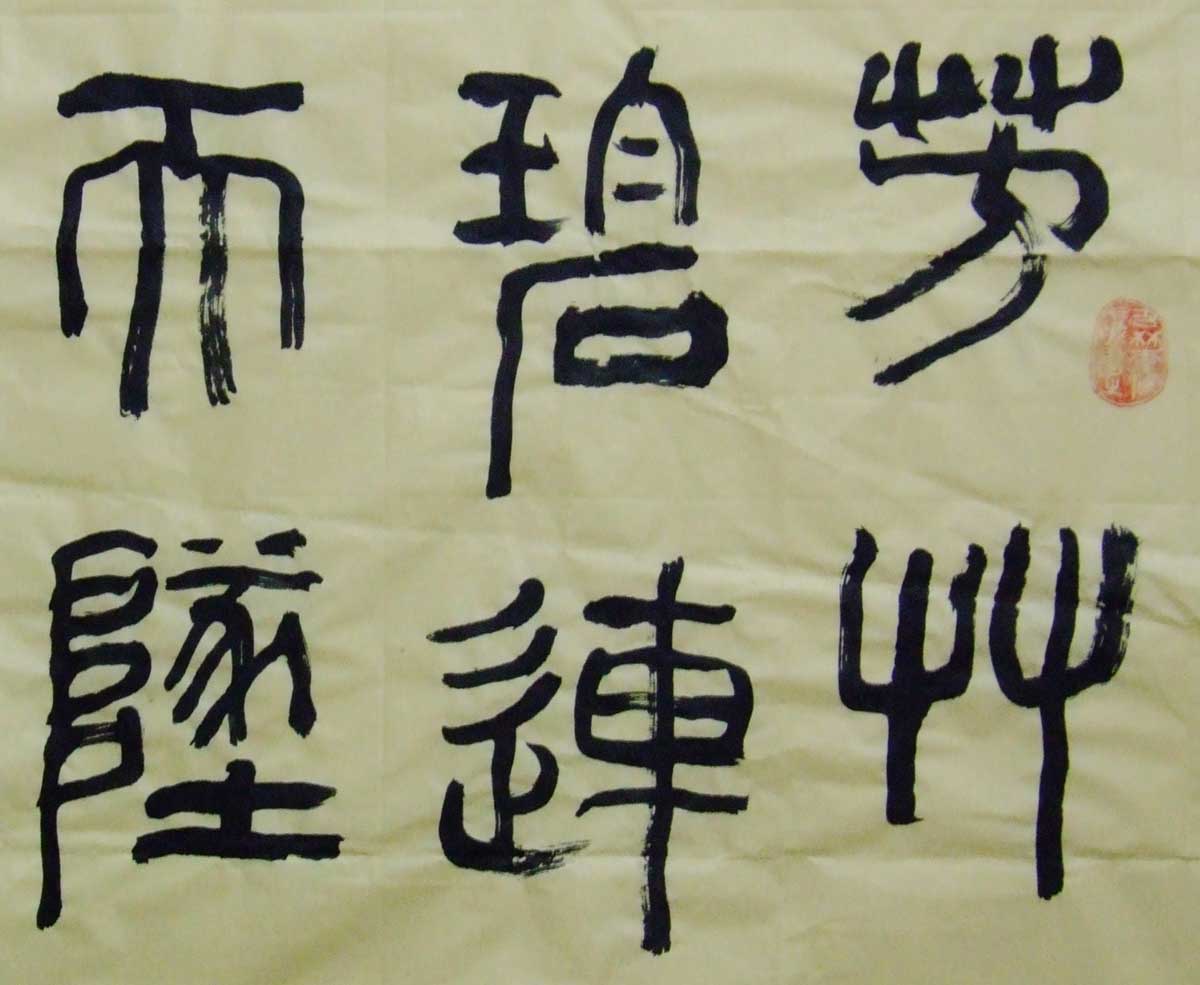 芳艸
碧連
天墜